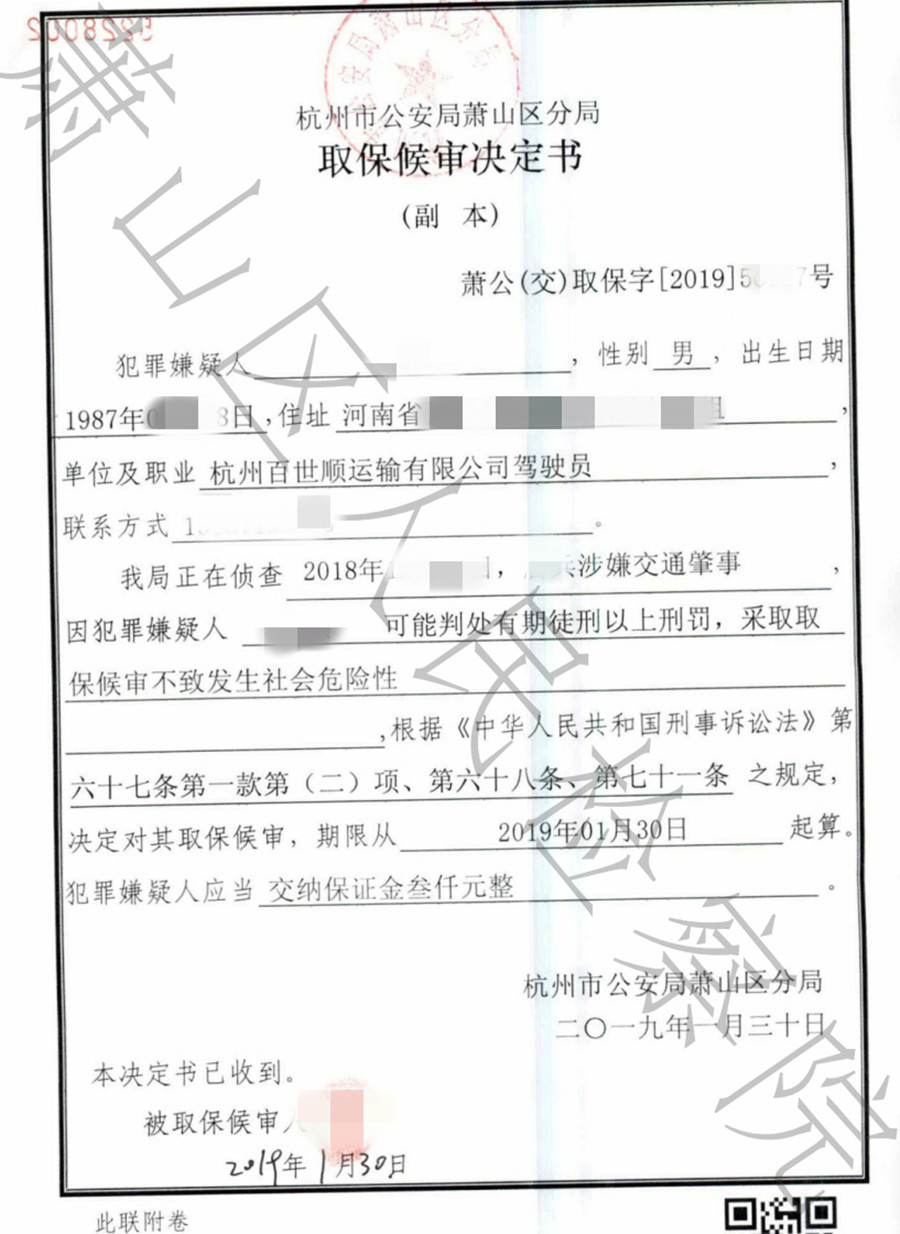 5228002
杭州市公安局萧山区分局
取保候审决定书
(副 本)
萧公(交)取保字[2019]5 7号
犯罪嫌疑人 ,性别 男 ,出生日期
1987年0 8日,住址 河南省 组,
单位及职业 杭州百世顺运输有限公司驾驶员 ,
联系方式 1 。
我局正在侦查 2018年1 日, 涉嫌交通肇事 ,
因犯罪嫌疑人 可能判处有期徒刑以上刑罚,采取取
保候审不致发生社会危险性
,根据《中华人民共和国刑事诉讼法》第
六十七条第一款第(二)项、第六十八条、第七十一条 之规定,
决定对其取保候审,期限从 2019年01月30日 起算。
犯罪嫌疑人应当 交纳保证金叁仟元整 。
杭州市公安局萧山区分局
二〇一九年一月三十日
本决定书已收到。
被取保候审人
2019年1月30日
此联附卷
萧山区人民检察院